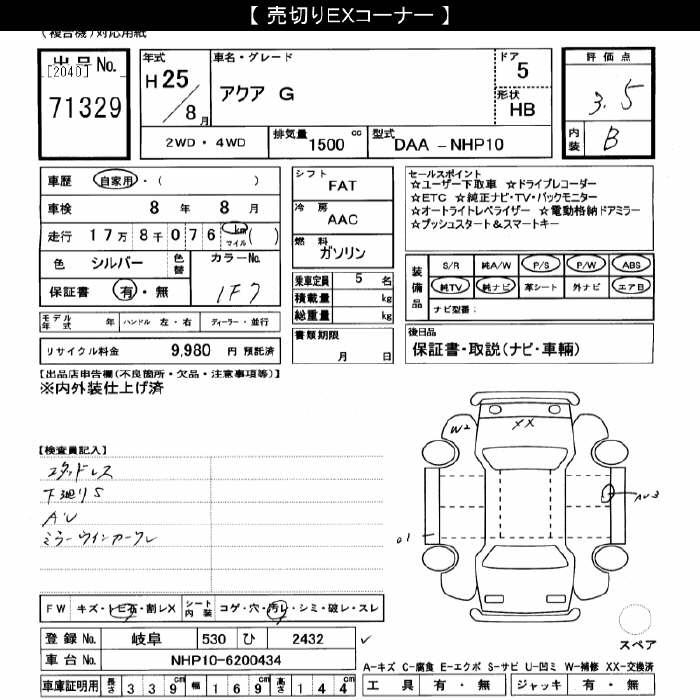 【 売切りEXコーナー 】
(複合機)対応用紙
出品No.
[2040]
71329
年式
H 25
8 月
車名・グレード
アクア G
ドア
5
形状
HB
評価点
3.5
内装
B
2WD・4WD
排気量 1500 cc
型式 DAA -NHP10
車歴 自家用・( )
車検 8 年 8 月
走行 17万8千076 km マイル ( )
色 シルバー 色替 カラーNo.
1F7
保証書 有・無
モデル年式 年 ハンドル 左・右 ディーラー・並行
リサイクル料金 9,980 円 預託済
シフト
FAT
冷房
AAC
燃料
ガソリン
乗車定員 5 名
積載量 kg
総重量 kg
書類期限
月 日
セールスポイント
☆ユーザー下取車 ☆ドライブレコーダー
☆ETC ☆純正ナビ・TV・バックモニター
☆オートライトレベライザー ☆電動格納ドアミラー
☆プッシュスタート&スマートキー
装備品
S/R 純A/W P/S P/W ABS
純TV 純ナビ 革シート 外ナビ エアB
ナビ型番:
後日品
保証書・取説(ナビ・車輌)
【出品店申告欄(不良箇所・欠品・注意事項等)】
※内外装仕上げ済
【検査員記入】
スタッドレス
下廻りS
AU
ミラーウインカーワレ
W2
XX
AU3
FW キズ・トビ石・割レX シート内装 コゲ・穴・汚レ・シミ・破レ・スレ
登録 No. 岐阜 530 ひ 2432
車台 No. NHP10-6200434
車庫証明用 長さ 339cm 幅 169cm 高さ 144cm
スペア
A-キズ C-腐食 E-エクボ S-サビ U-凹ミ W-補修 XX-交換済
工具 有・無 ジャッキ 有・無